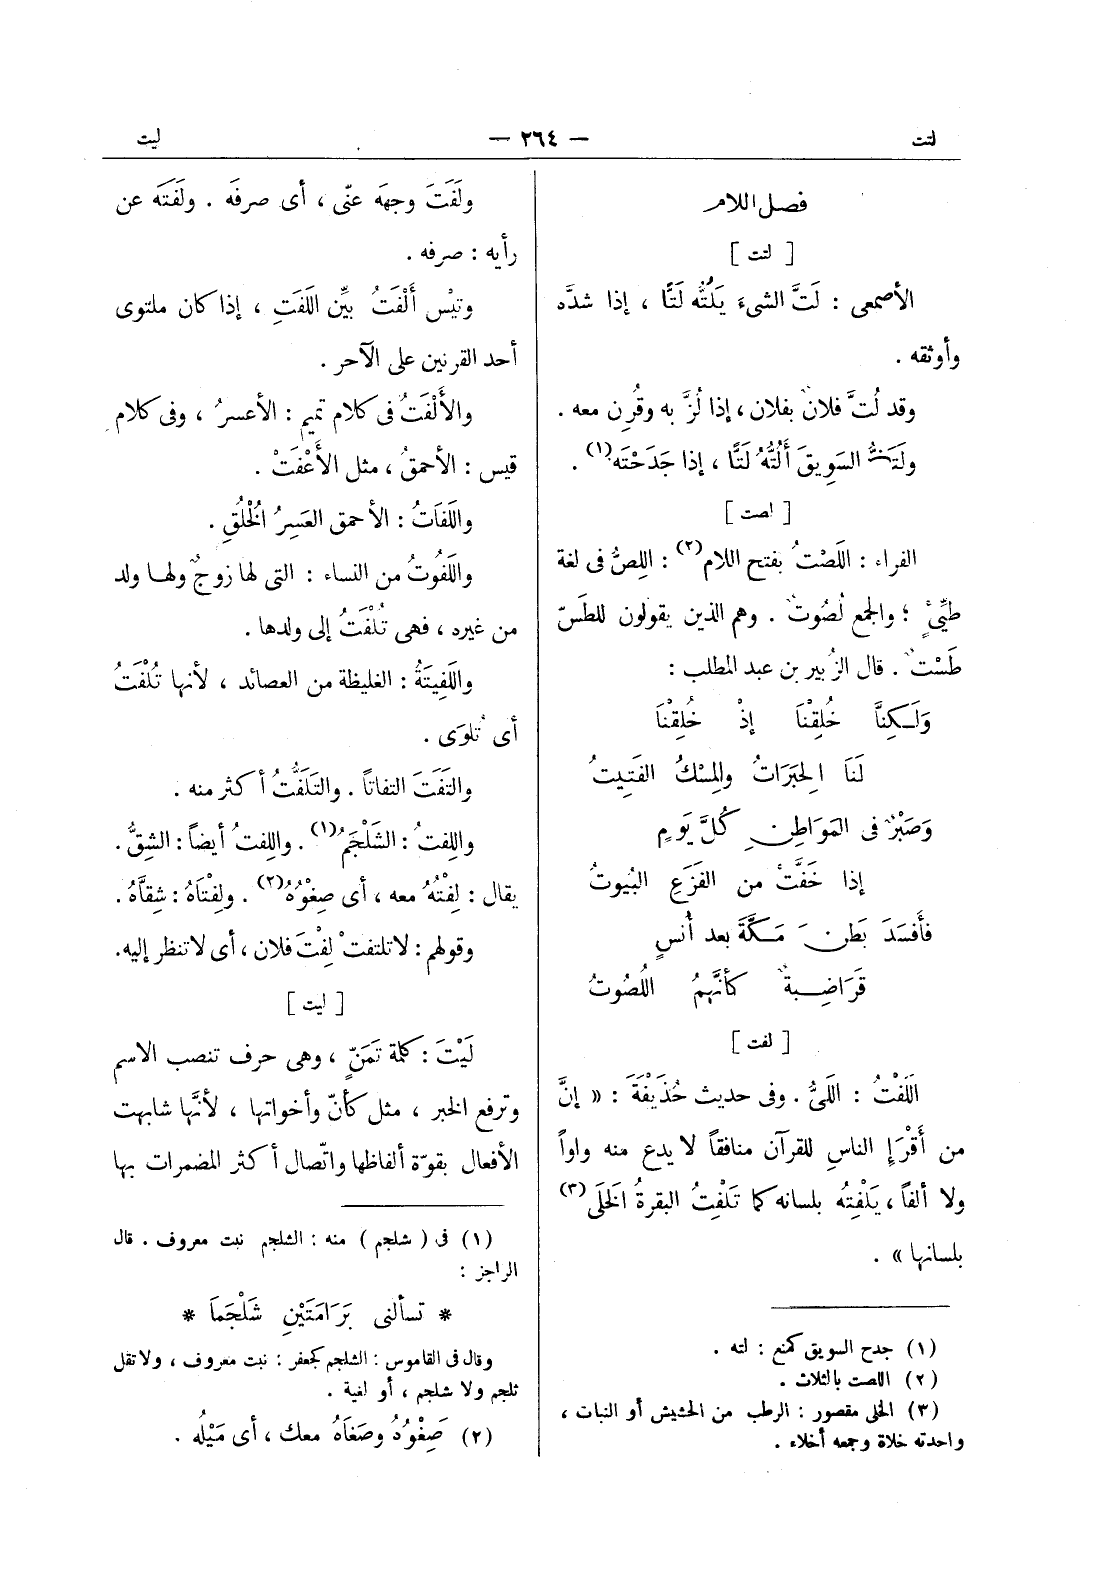 لتت
— ٢٦٤ —
ليت
فصل اللام
[ لتت ]
الأصمعى : لَتَّ الشىءَ يَلُتُّه لَتًّا ، إذا شدَّه
وأوثقه .
وقد لُتَّ فلانٌ بفلان ، إذا لُزَّ به وقُرِن معه .
ولَتَتُّ السَوِيقَ أَلُتُّهُ لَتًّا ، إذا جَدَحْتَه(١) .
[ لصت ]
الفراء : اللَصْتُ بفتح اللام(٢) : اللِصُّ فى لغة
طيِّئٍ ؛ والجمع لُصُوتٌ . وهم الذين يقولون للطَسّ
طَسْتٌ . قال الزُبير بن عبد المطلب :
وَلَـكِنَّا خُلِقْنَا إذْ خُلِقْنَا
لَنَا الحِبَرَاتُ والمِسْكُ الفَتِيتُ
وَصَبْرٌ فى المَوَاطِنِ كُلَّ يَومٍ
إذا خَفَّتْ من الفَزَعِ البُيوتُ
فأَفسَدَ بَطْنَ مَـكَّةَ بعد أُنسٍ
قَرَاضِـبةٌ كأنَّهمُ اللُصُوتُ
[ لفت ]
اللَفْتُ : اللَىُّ . وفى حديث حُذَيْفَةَ : « إنَّ
من أَقْرَإِ الناسِ للقرآن منافقاً لا يدع منه واواً
ولا ألفاً ، يَلْفِتُه بلسانه كما تَلْفِتُ البقرةُ الخَلَى(٣)
بلسانها » .
(١) جدح السويق كمنع : لته .
(٢) اللصت بالثلاث .
(٣) الخلى مقصور : الرطب من الحشيش أو النبات ،
واحدته خلاة وجمعه أخلاء .
ولَفَتَ وجهَه عنّى ، أى صرفَه . ولَفَتَه عن
رأيه : صرفه .
وتيْس أَلْفَتُ بيِّن اللَفَتِ ، إذا كان ملتوى
أحد القرنين على الآحر .
والأَلْفَتُ فى كلام تميمٍ : الأعسرُ ، وفى كلام
قيس : الأحمقُ ، مثل الأَعْفَتْ .
واللَفَاتُ : الأحمق العَسِرُ الخُلُقِ .
واللَفُوتُ من النساء : التى لها زوجٌ ولها ولد
من غيره ، فهى تُلْفَتُ إلى ولدها .
واللَفِيتَةُ : الغليظة من العصائد ، لأنها تُلْفَتُ
أى تُلوَى .
والتَفَتَ التفاتاً . والتَلَفُّتُ أكثر منه .
واللِفتُ : الشَلْجَمُ(١) . واللِفتُ أيضاً : الشِقُّ .
يقال : لِفْتُهُ معه ، أى صِغْوُهُ(٢) . ولِفْتَاهُ : شِقَّاهُ .
وقولهم : لا تلتفتْ لِفْتَ فلان ، أى لا تنظر إليه.
[ ليت ]
لَيْتَ : كلمة تَمَنٍّ ، وهى حرف تنصب الاسم
وترفع الخبر ، مثل كأنّ وأخواتها ، لأنَّها شابهت
الأفعال بقوّة ألفاظها واتّصال أكثر المضمرات بها
(١) فى ( شلجم ) منه : الشلجم نبت معروف . قال
الراجز :
* تسألنى بَرَامَتَيْنِ شَلْجَمَا *
وقال فى القاموس : الشلجم كجعفر : نبت معروف ، ولا تقل
ثلجم ولا شلجم ، أو لغية .
(٢) صَِغْوُهُ وصَغَاهُ معك ، أى مَيْلُه .